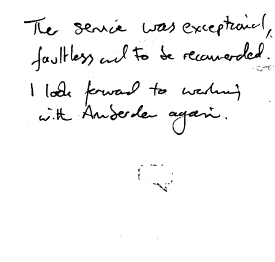 The service was exceptional,
faultless and to be recommended.
I look forward to working
with Amberden again.